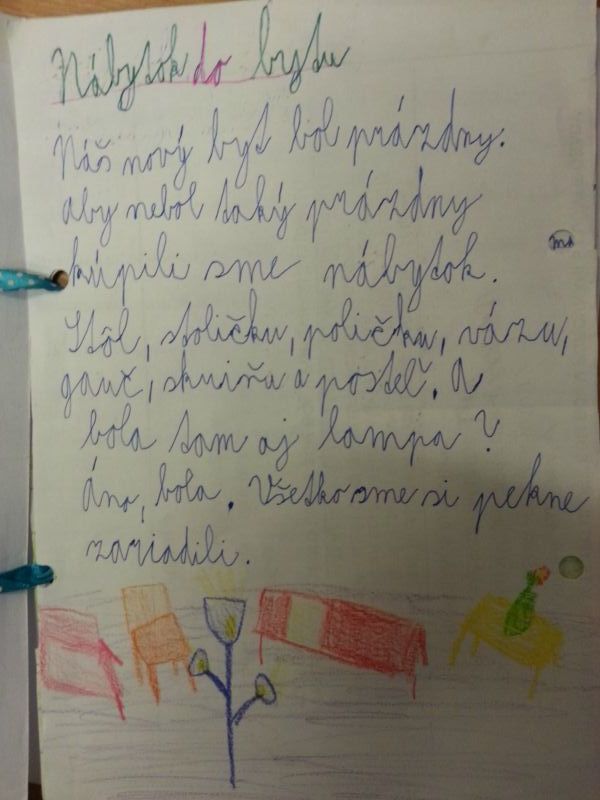 Nábytok do bytu
Náš nový byt bol prázdny.
aby nebol taký prázdny
kúpili sme nábytok.
Stôl, stoličku, poličku, vázu,
gauč, skriňu a posteľ. A
bola tam aj lampa?
Áno, bola. Všetko sme si pekne
zariadili.